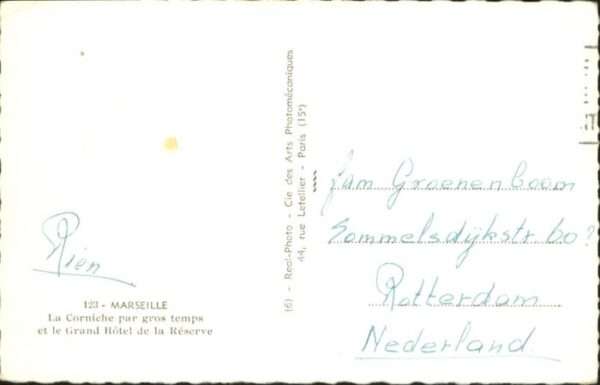 Rien
123 - MARSEILLE
La Corniche par gros temps
et le Grand Hôtel de la Réserve
(6) - Real-Photo - Cie des Arts Photomécaniques
44, rue Letellier - Paris (15e)
fam Groenenboom
Sommelsdijkstr 60?
Rotterdam
Nederland